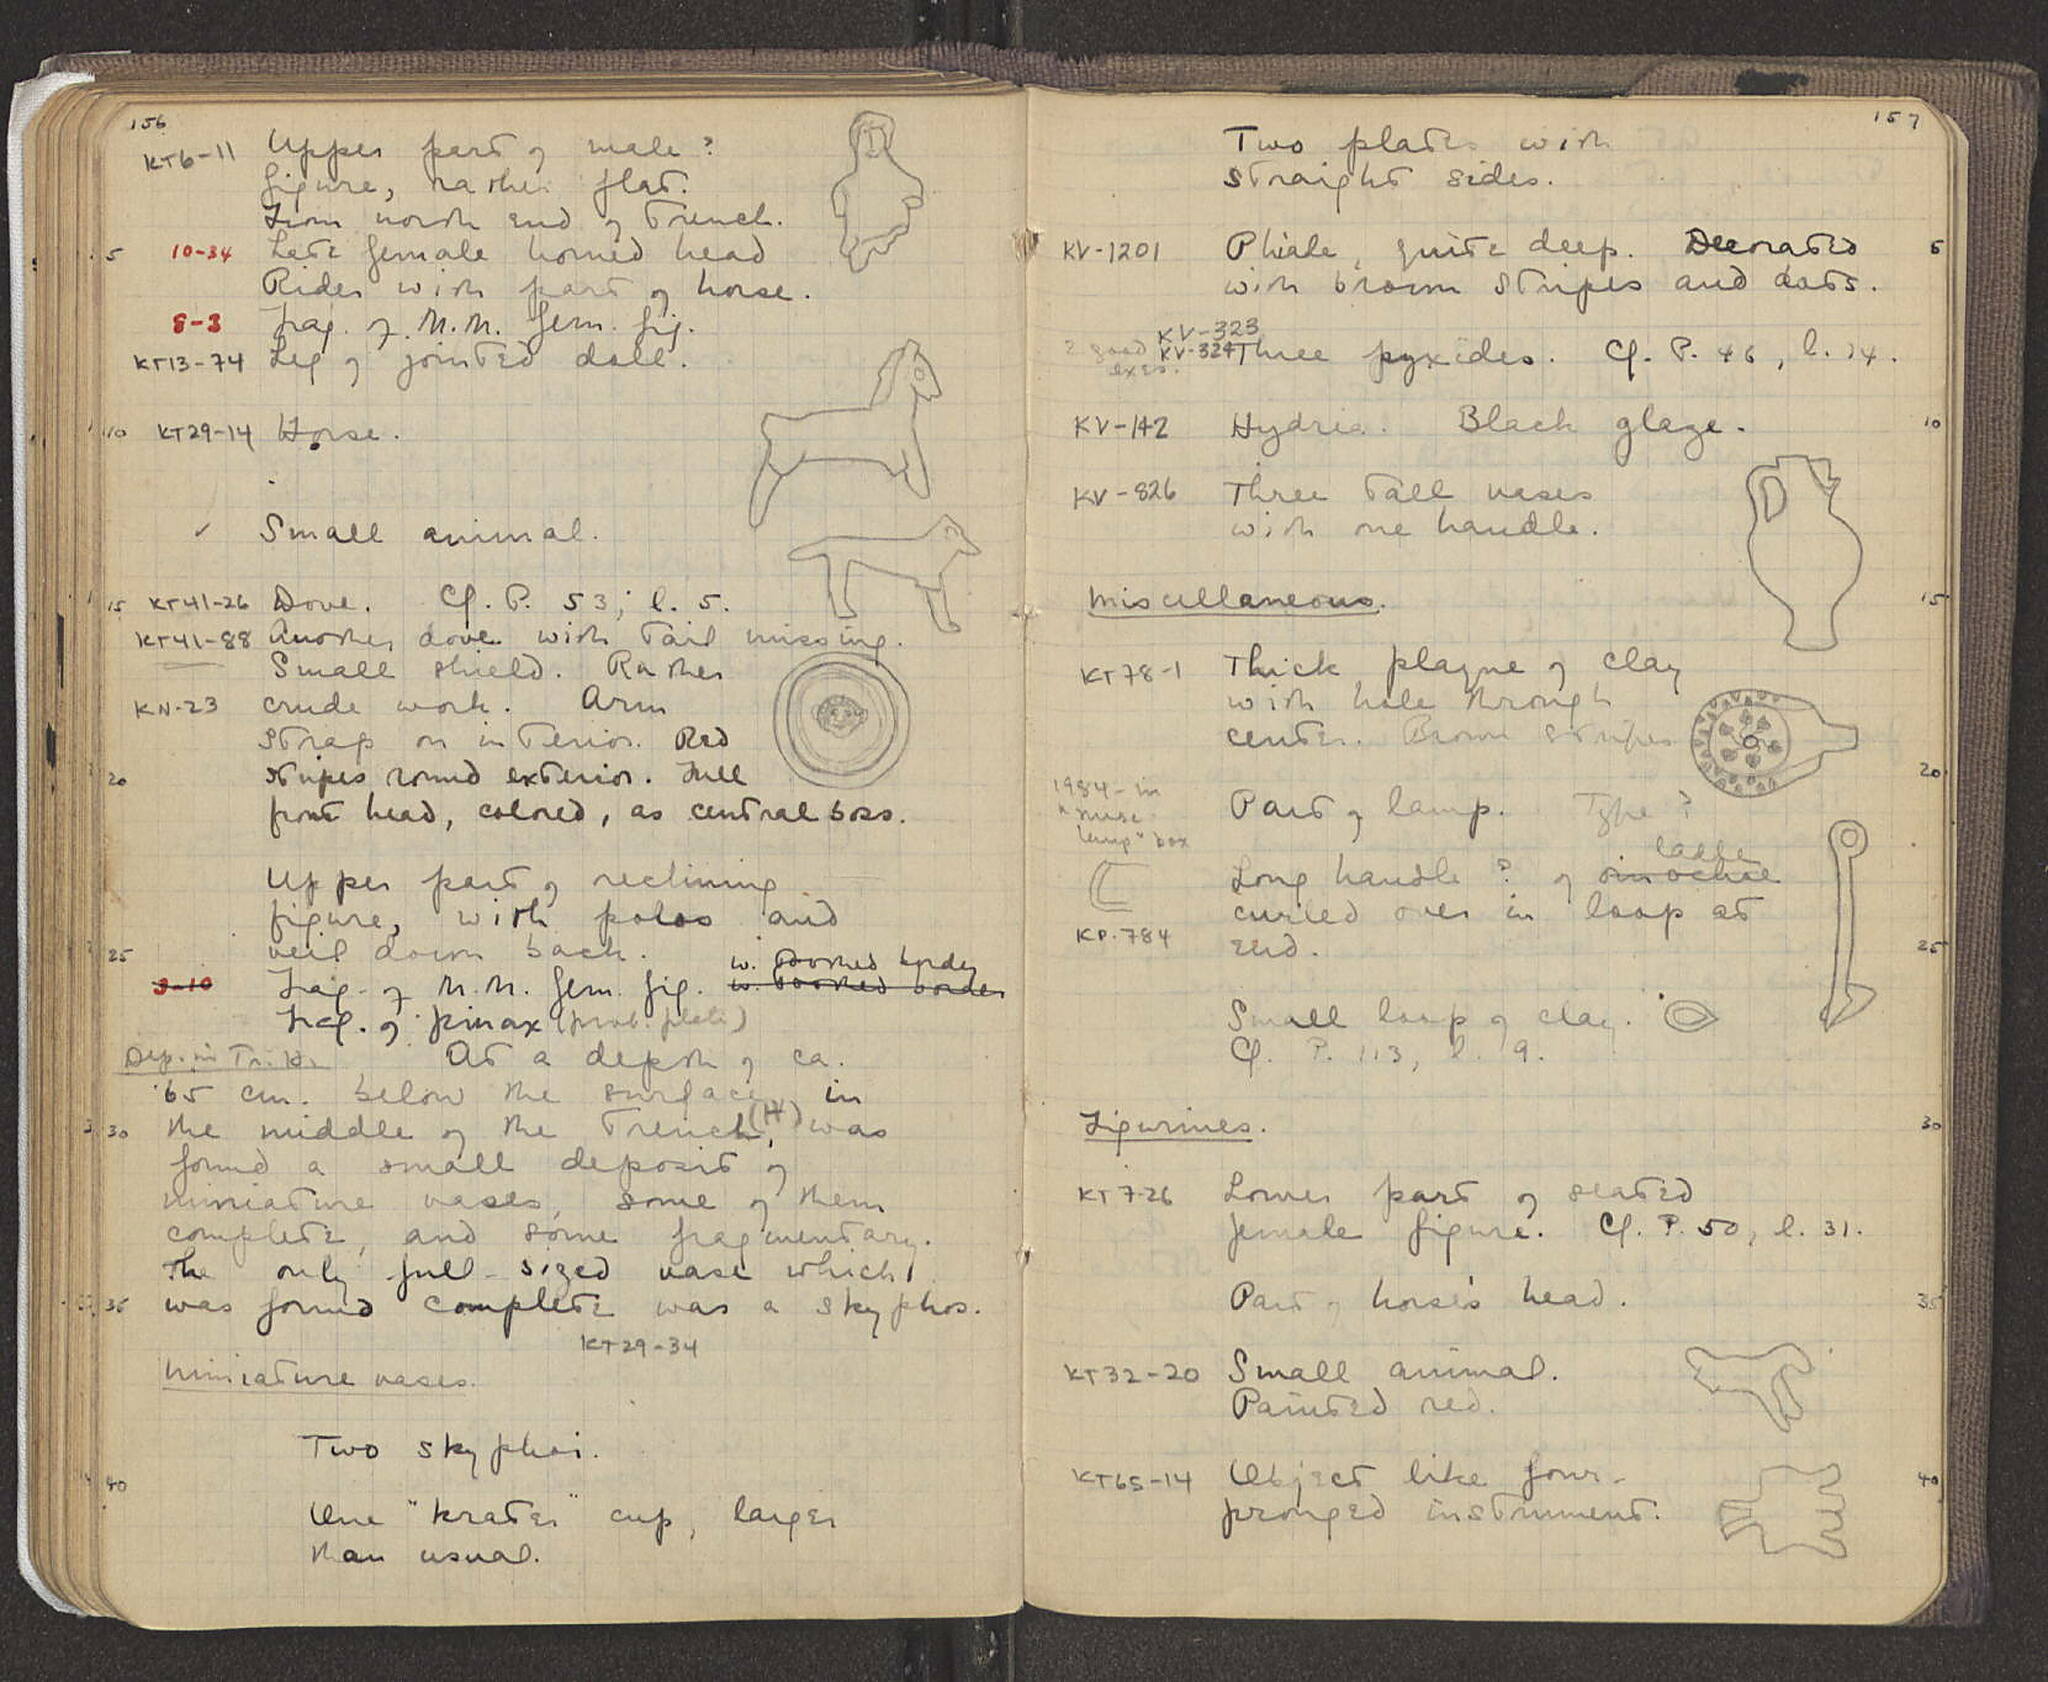 156
KT6-11 Upper part of male?
figure, rather flat.
From north end of trench.
5 10-34 Late female horned head
Rider with part of horse.
8-3 Frag. of M.M. fem. fig.
KT13-74 Leg of jointed doll.
10 KT29-14 Horse.
✓ Small animal.
15 KT41-26 Dove. Cf. P. 53, l. 5.
KT41-88 Another dove with tail missing.
Small shield. Rather
KN-23 crude work. Arm
strap on interior. Red
20 stripes round exterior. Full
front head, colored, as central boss.
Upper part of reclining
figure, with polos and
25 veil down back.
w. toothed border
3-10 Frag. of M.M. fem. fig. w. toothed border
Frag. of pinax (prob. plate)
Dep. in Tr. H. At a depth of ca.
65 cm. below the surface, in
30 the middle of the trench (H), was
found a small deposit of
miniature vases, some of them
complete, and some fragmentary.
The only full-sized vase which
35 was found complete was a skyphos.
KT29-34
Miniature vases.
Two skyphoi.
40
One "krater" cup, larger
than usual.
157
Two plates with
straight sides.
KV-1201 Phiale, quite deep. Decorated 5
with brown stripes and dots.
KV-323
2 good KV-324 Three pyxides. Cf. P. 46, l. 14.
exs.
KV-142 Hydria. Black glaze. 10
KV-826 Three tall vases
with one handle.
Miscellaneous. 15
KT78-1 Thick plaque of clay
with hole through
center. Brown stripes
20
1984 - in
"misc. Part of lamp. Type?
lamp" box
ladle
Long handle? of oinochoe
curled over in loop at
KP.784 end. 25
Small loop of clay.
Cf. P. 113, l. 9.
Figurines. 30
KT7-26 Lower part of seated
female figure. Cf. P. 50, l. 31.
Part of horse's head. 35
KT32-20 Small animal.
Painted red.
KT65-14 Object like four- 40
pronged instrument.